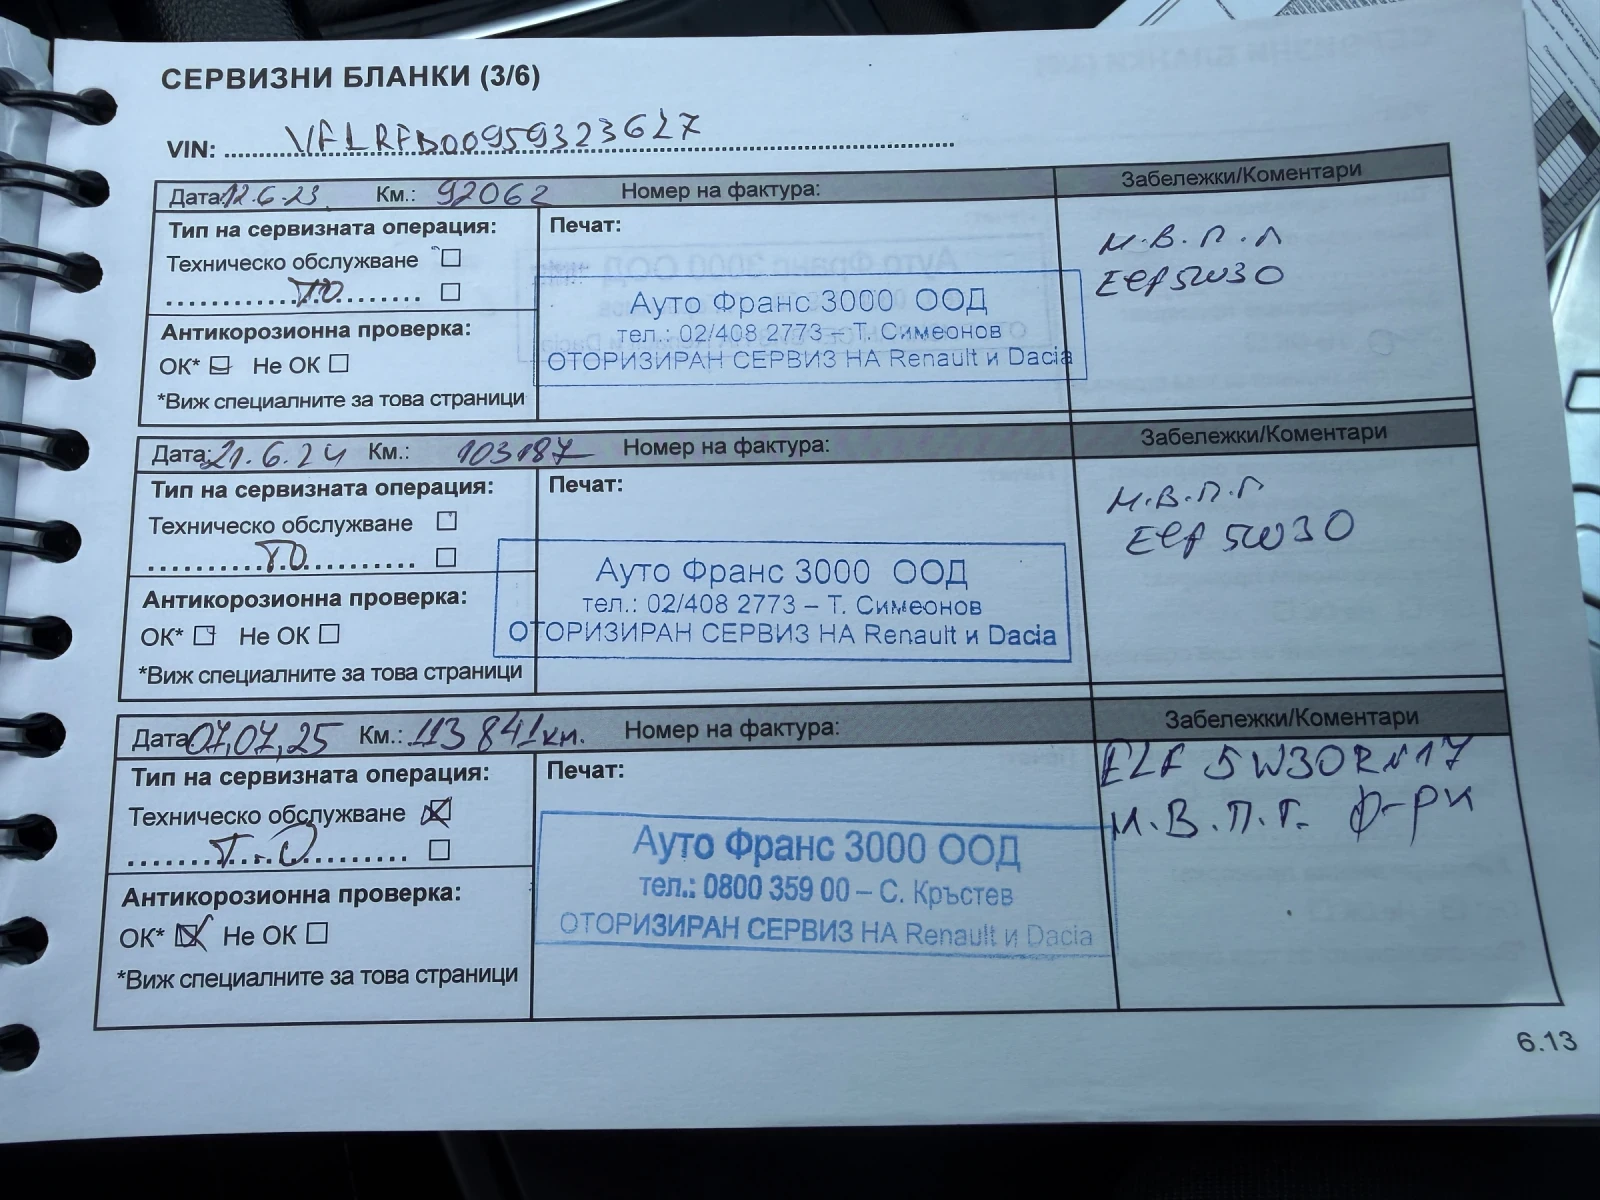 СЕРВИЗНИ БЛАНКИ (3/6)
VIN: VF1RFB00959323627
Дата: 12.6.23 Км.: 92062 Номер на фактура: Забележки/Коментари
Тип на сервизната операция: Печат:
Техническо обслужване
ТО
Антикорозионна проверка:
ОК* Не ОК
*Виж специалните за това страници
Ауто Франс 3000 ООД
тел.: 02/408 2773 – Т. Симеонов
ОТОРИЗИРАН СЕРВИЗ НА Renault и Dacia
М.В.П.Г
Elf 5W30
Дата: 21.6.24 Км.: 103187 Номер на фактура: Забележки/Коментари
Тип на сервизната операция: Печат:
Техническо обслужване
ТО
Антикорозионна проверка:
ОК* Не ОК
*Виж специалните за това страници
Ауто Франс 3000 ООД
тел.: 02/408 2773 – Т. Симеонов
ОТОРИЗИРАН СЕРВИЗ НА Renault и Dacia
М.В.П.Г
Elf 5W30
Дата: 07,07,25 Км.: 113 841км. Номер на фактура: Забележки/Коментари
Тип на сервизната операция: Печат:
Техническо обслужване
Т.О
Антикорозионна проверка:
ОК* Не ОК
*Виж специалните за това страници
Ауто Франс 3000 ООД
тел.: 0800 359 00 – С. Кръстев
ОТОРИЗИРАН СЕРВИЗ НА Renault и Dacia
ELF 5W30RN17
М.В.П.Г. ф-ри
6.13